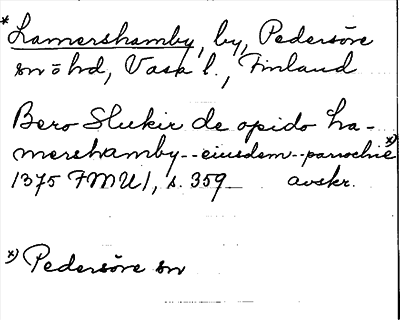 * Lamershamby, by, Pedersöre
sn ö hd, Vasa l., Finland
Bero Slukir de opido La-
mershamby - - eiusdem - - parrochie *)
1375 FMU 1, s. 359 avskr.
*) Pedersöre sn